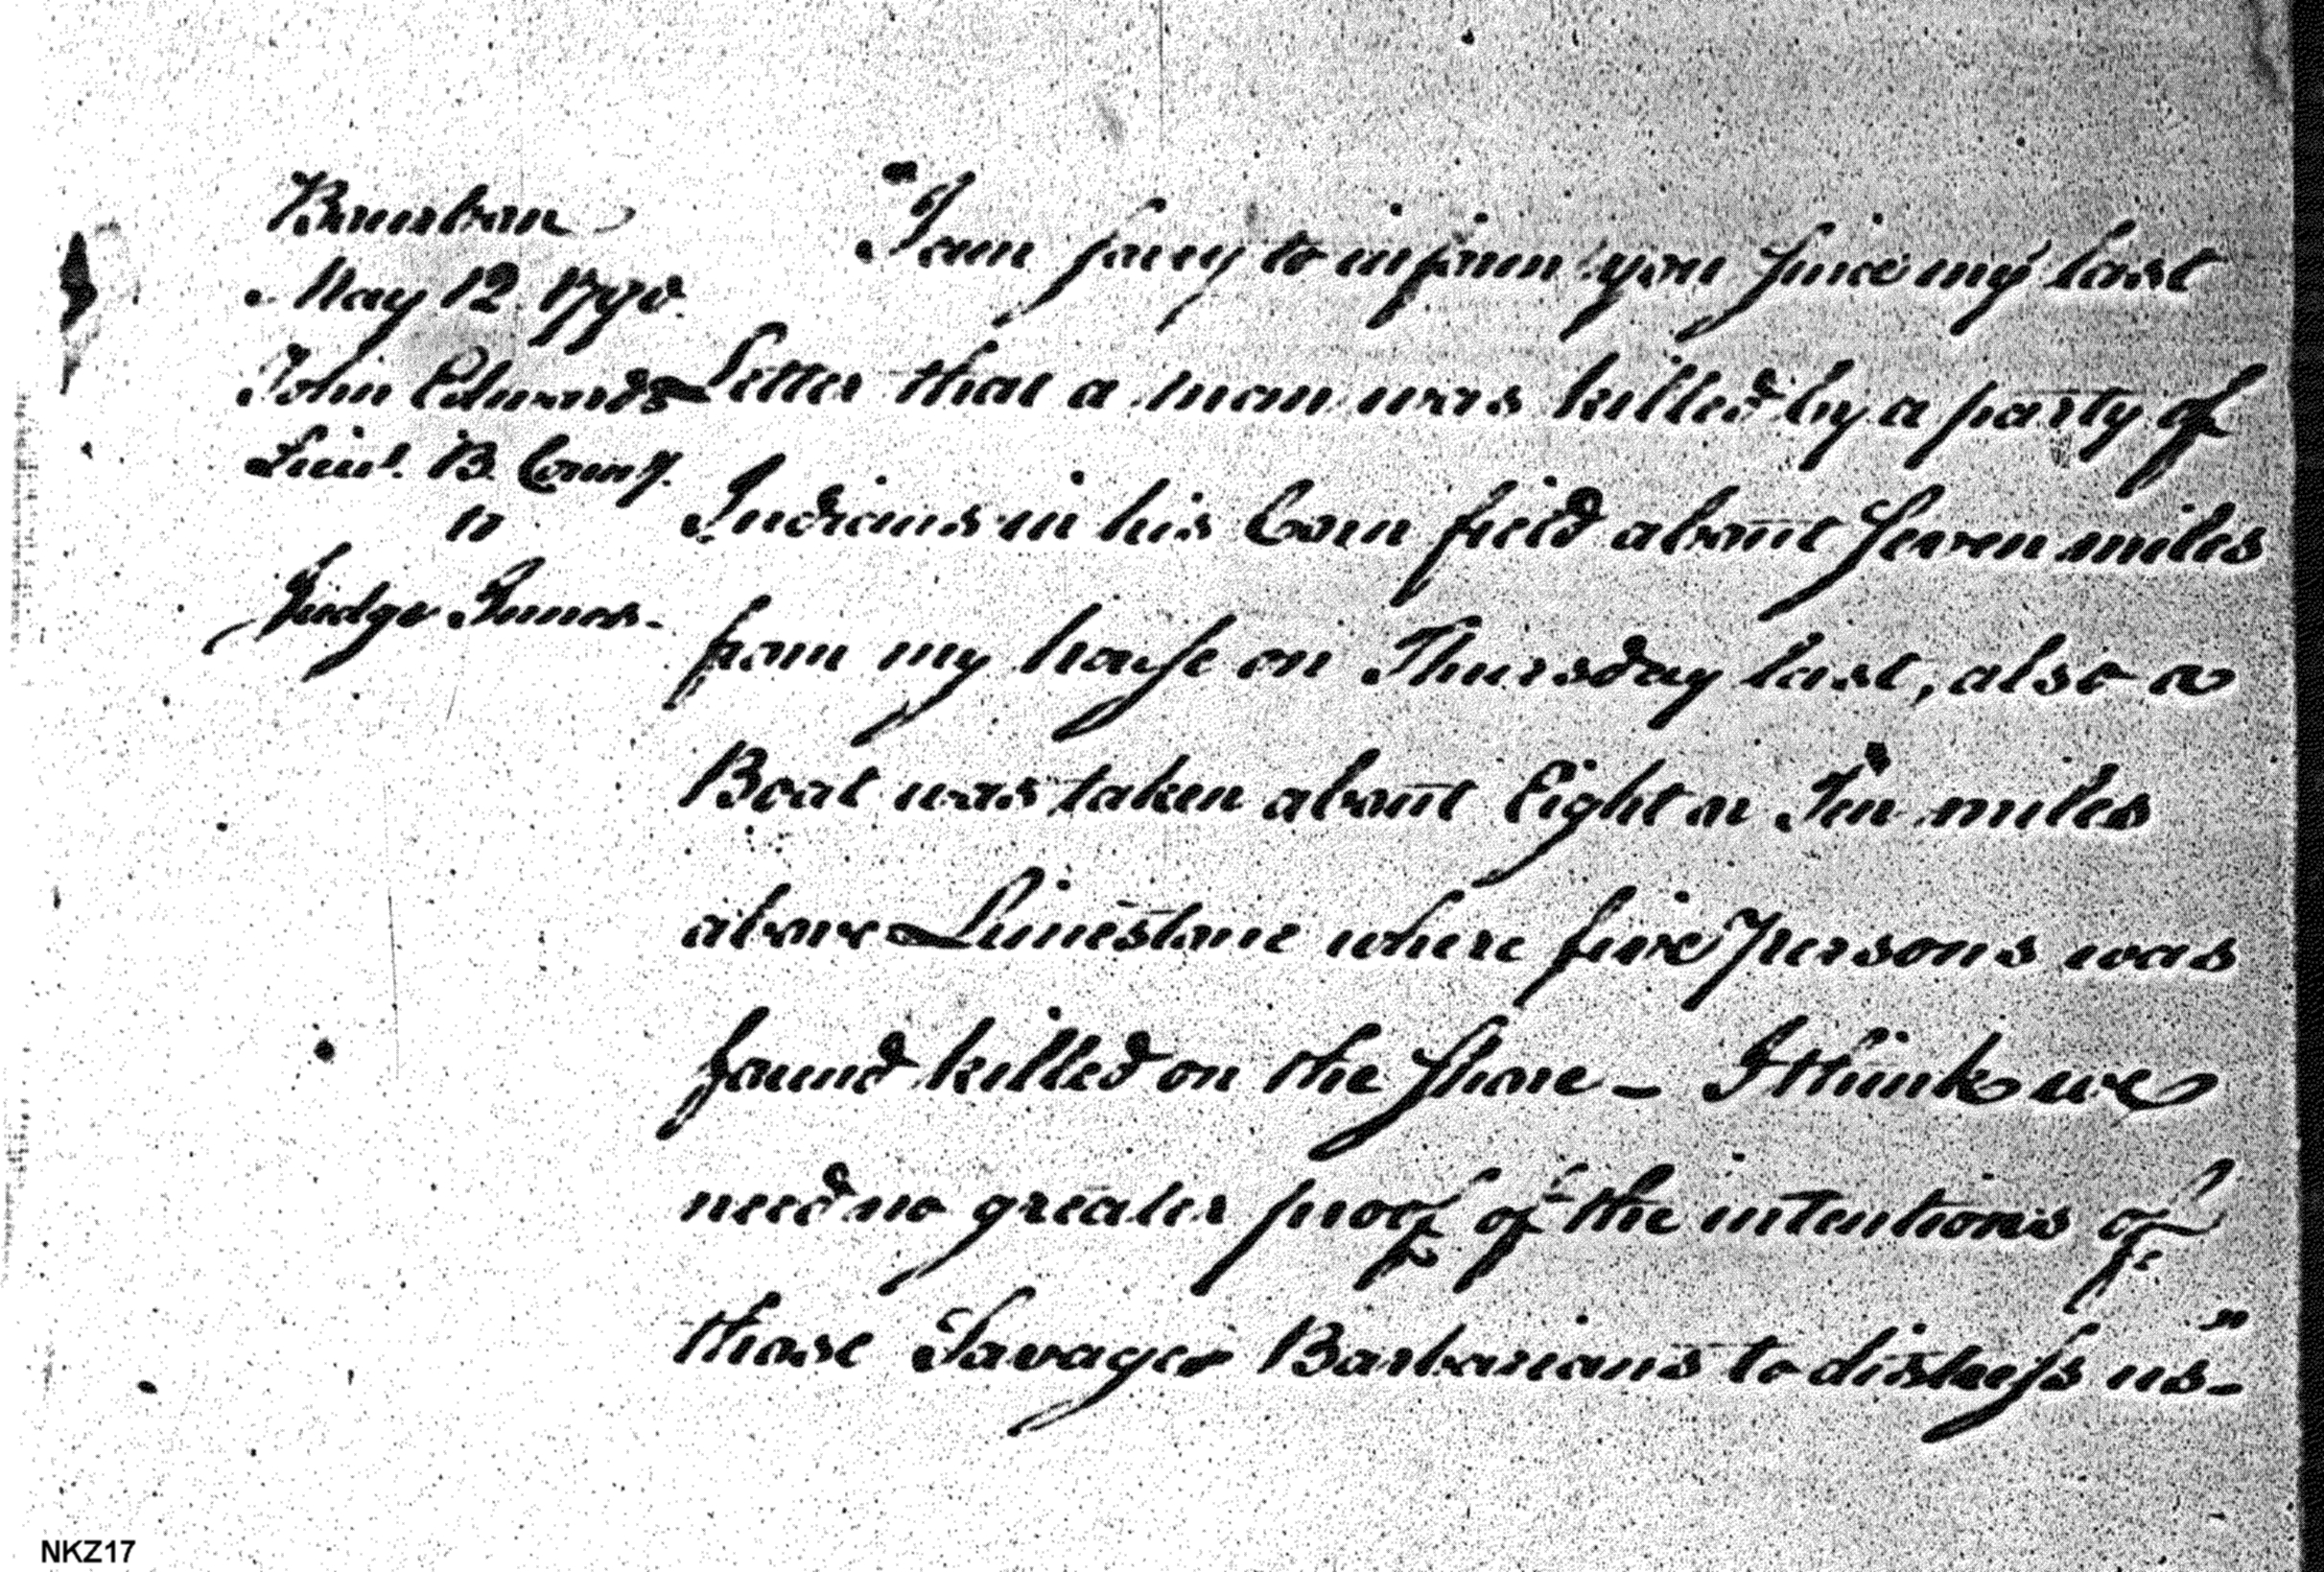 Bourbon
May 12. 1790.
John Edwards
Lieut. B. County.
to
Judge Innes.
"I am sorry to inform you since my last
Letter that a man was killed by a party of
Indians in his Corn field about seven miles
from my house on Thursday last, also a
Boat was taken about Eight or Ten miles
above Limestone where five persons was
found killed on the shore - I think we
need no greater proof of the intentions of
those Savage Barbarians to distress us-"
NKZ17